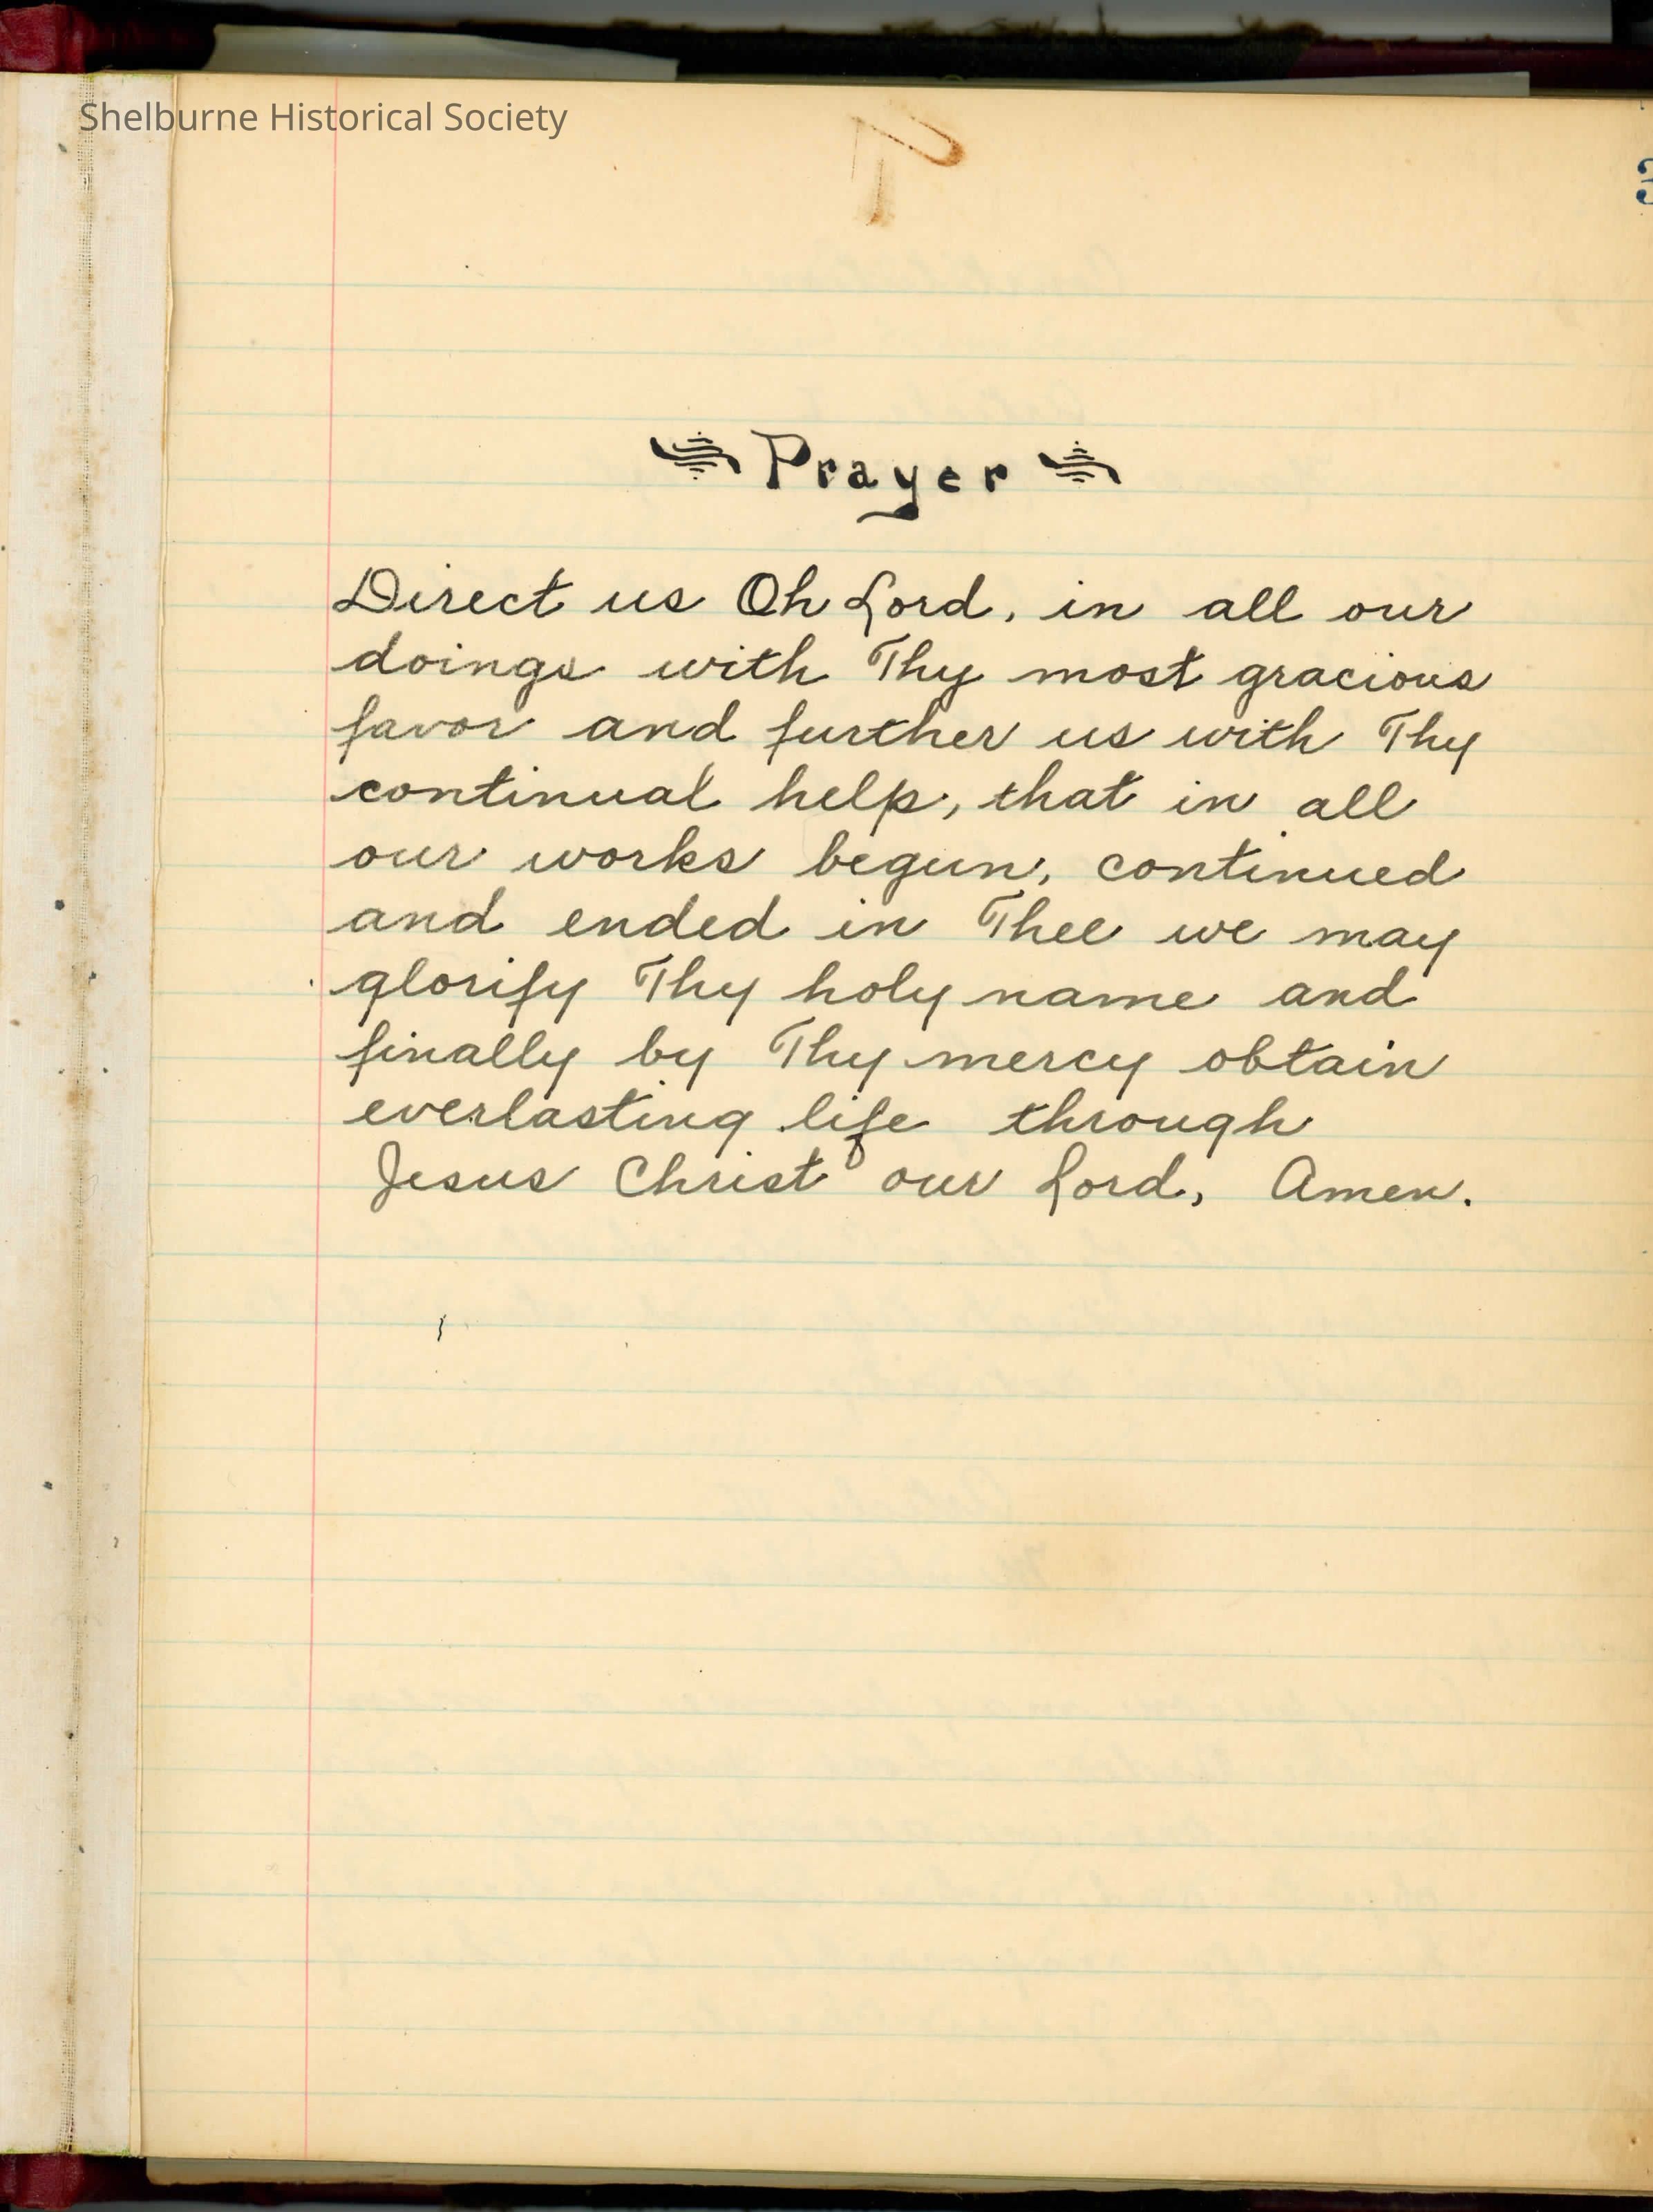 Shelburne Historical Society
3
Prayer
Direct us Oh Lord, in all our
doings with Thy most gracious
favor and further us with Thy
continual help, that in all
our works begun, continued
and ended in Thee we may
glorify Thy holy name and
finally by Thy mercy obtain
everlasting life through
Jesus Christ our Lord, Amen.